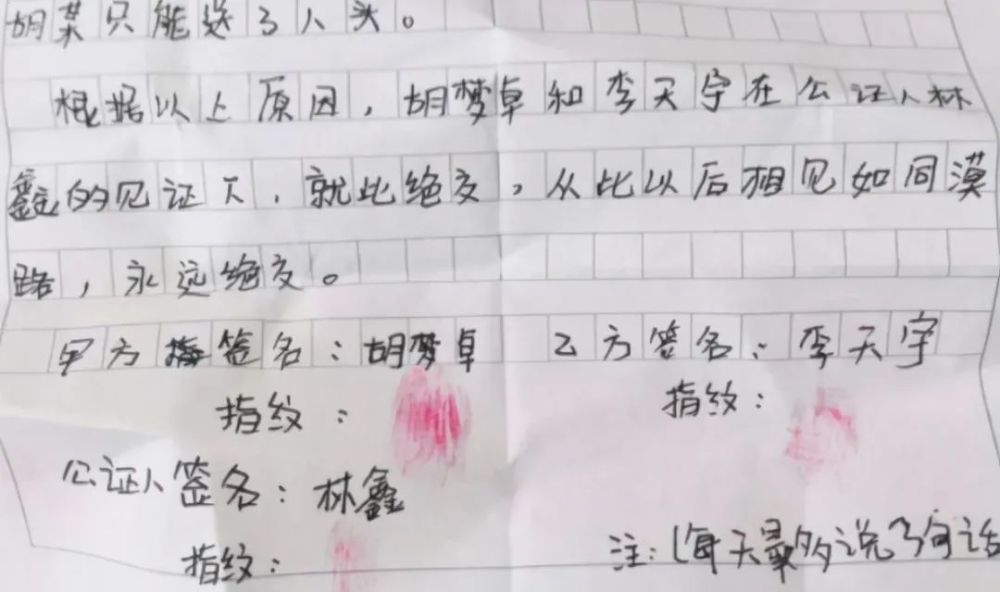 胡某只能送了人头。
根据以上原因，胡梦卓和李天宇在公证人林
鑫的见证下，就此绝交，从比以后相见如同漠
路，永远绝交。
甲方签名：胡梦卓 乙方签名：李天宇
指纹： 指纹：
公证人签名：林鑫
指纹： 注：(每天最多说3句话